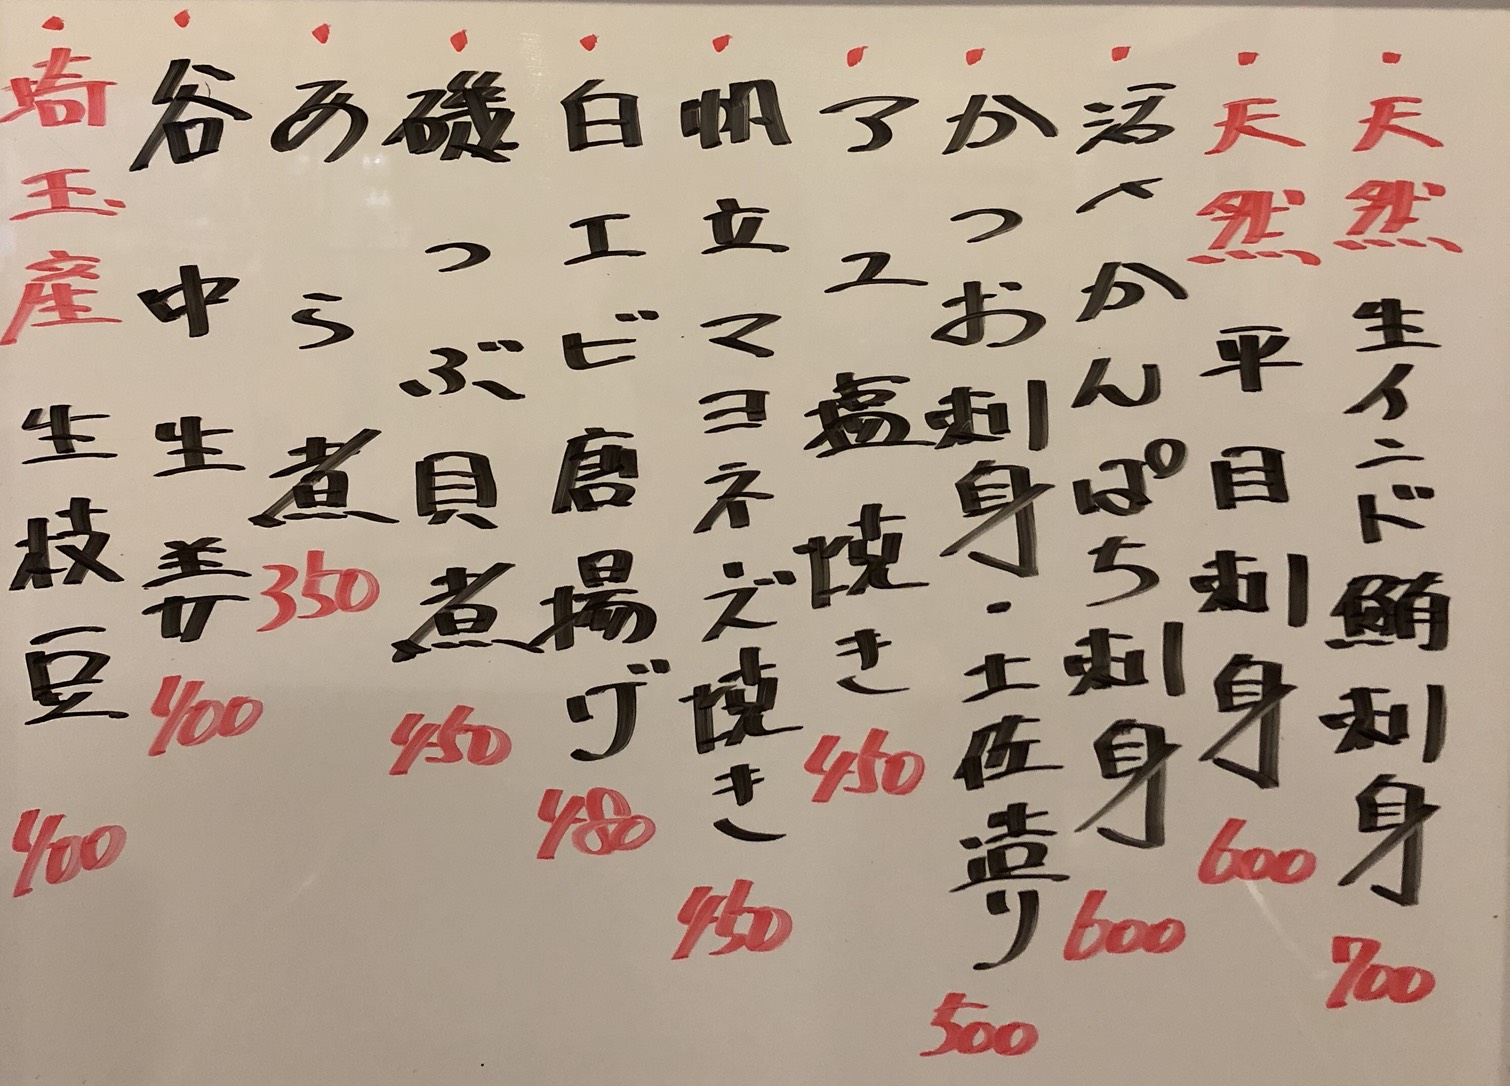 ・天然 生インド鮪刺身 700
・天然 平目刺身 600
・活〆かんぱち刺身 600
・かつお刺身・土佐造り 500
・アユ塩焼き 450
・帆立マヨネズ焼き 450
・白エビ唐揚げ 480
・磯つぶ貝煮 450
・あら煮 350
・谷中生姜 400
・埼玉産 生枝豆 400